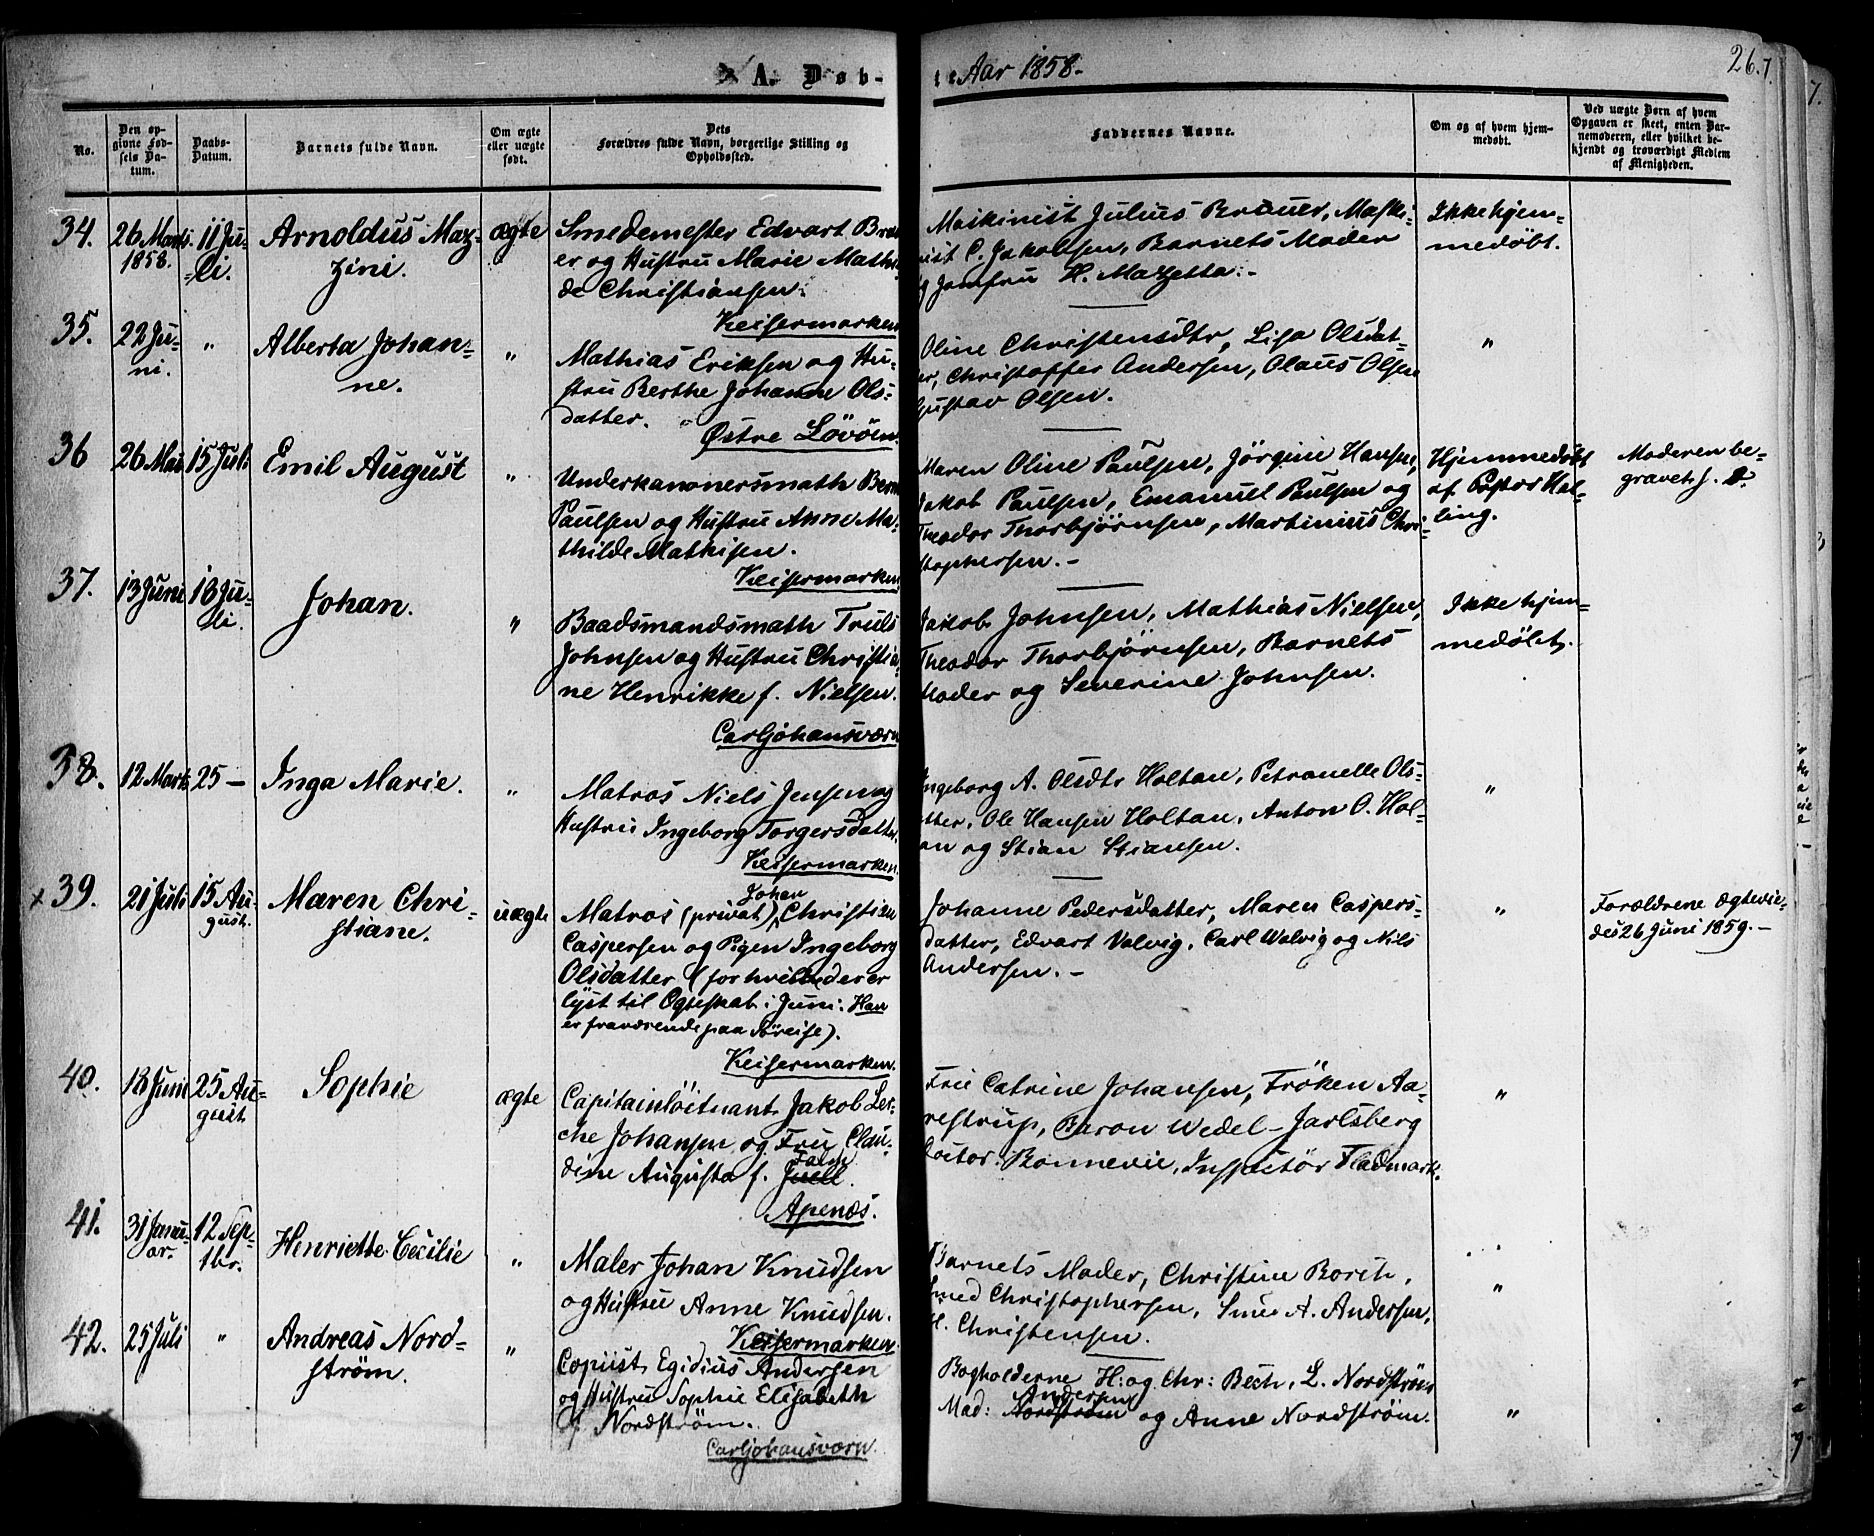 A. Døb-
te Aar 1858.
26.
No.
Den op-
givne Fød-
sels Da-
tum.
Daabs-
Datum.
Barnets fulde Navn.
Om ægte
eller uægte
født.
Dets
Forældres fulde Navn, borgerlige Stilling og
Opholdssted.
Faddernes Navne.
Om og af hvem hjem-
medøbt.
Ved uægte Børn af hvem
Opgaven er skeet, enten Bar-
nemoderen, eller hvilket be-
kjendt og troværdigt Medlem
af Menigheden.
34.
26 Marts
1858.
11 Ju-
li.
Arnoldus Maz-
zini.
ægte
Smedemester Edvart Brau
er og Hustru Marie Mathil
de Christiansen.
Keisermarken
Maskinist Julius Brauer, Maski-
nist C. Jakobsen, Barnets Moder
og Jomfru H. Mazetta.-
Ikke hjem-
medøbt.
35.
22 Ju-
ni.
"
Alberta Johan-
ne.
"
Mathias Eriksen og Hu-
stru Berthe Johanne Ols-
datter.
Østre Løvøen.
Oline Christensdtr, Lisa Olsdat-
er, Christoffer Andersen, Olaus Olsen
Gustav Olsen.
"
36
26 Mai
15 Juli
Emil August
"
Underkanonersmath Bernt
Paulsen og Hustru Anne Ma-
thilde Mathisen.
Keisermarken
Maren Oline Paulsen, Jörgine Hansen,
Jakob Paulsen, Emanuel Paulsen og
Theodor Thorbjørnsen, Martinius Chri-
stophersen.-
Hjemmedøbt
af Pastor Hal-
ling.
Moderen be-
gravet s. D.
37.
13 Juni
18 Ju-
li.
Johan.
"
Baadsmandsmath Truls
Johnsen og Hustru Christia-
ne Henrikke f. Nielsen.
Carljohansværn
Jakob Johnsen, Mathias Nielsen,
Theodor Thorbjørnsen, Barnets
Moder og Severine Johnsen.
Ikke hjem-
medøbt.
38.
12 Marts
25 -
Inga Marie.
"
Matros Niels Jensen og
Hustru Ingeborg Torgersdatter.
Keisermarken.
Ingeborg A. Olsdtr Holtan, Petronelle Ols-
tter, Ole Hansen Holtan, Anton O. Hol-
an og Stian Stiansen.
"
x 39.
21 Juli
15 Au-
gust.
Maren Chri-
stiane.
uægte
Johan
Matros (privat) Christian
Caspersen og Pigen Ingeborg
Olsdatter (for hvilke der er
lyst til Ægteskab i Juni: Han
er fraværende paa Søreise).
Keisermarken.
Johanne Pedersdatter, Maren Caspers-
datter, Edvart Valvig, Carl Walvig og Nils
Andersen.-
"
Forældrene ægtevie-
des 26 Juni 1859.-
40.
18 Juni
25 Au-
gust.
Sophie
ægte
Capitainlöitnant Jakob Ler-
che Johansen og Fru Clau-
dine Augusta f. Juell.
Falsen
Apenæs.
Fru Catrine Johansen, Frøken Aa-
restrup, Baron Wedel-Jarlsberg
Doctor Bonnevie, Inspektör Fladmark.
"
41.
31 Janu-
ar.
12 Sep-
tbr.
Henriette Cecilie
"
Maler Johan Knudsen
og Hustru Anne Knudsen.
Keisermarken.
Barnets Moder, Christine Borch,
Smed Christophersen, Smed A. Andersen,
H. Christensen.
"
42.
25 Juli
"
Andreas Nord-
strøm.
"
Copiist Egidius Andersen
og Hustru Sophie Elisabeth
f. Nordstrøm.
Carljohansværn.
Bogholderne H: og Chr: Bech, L. Nordstrøm
Andersen
Mad: Nordstrøm og Anne Nordstrøm.
"